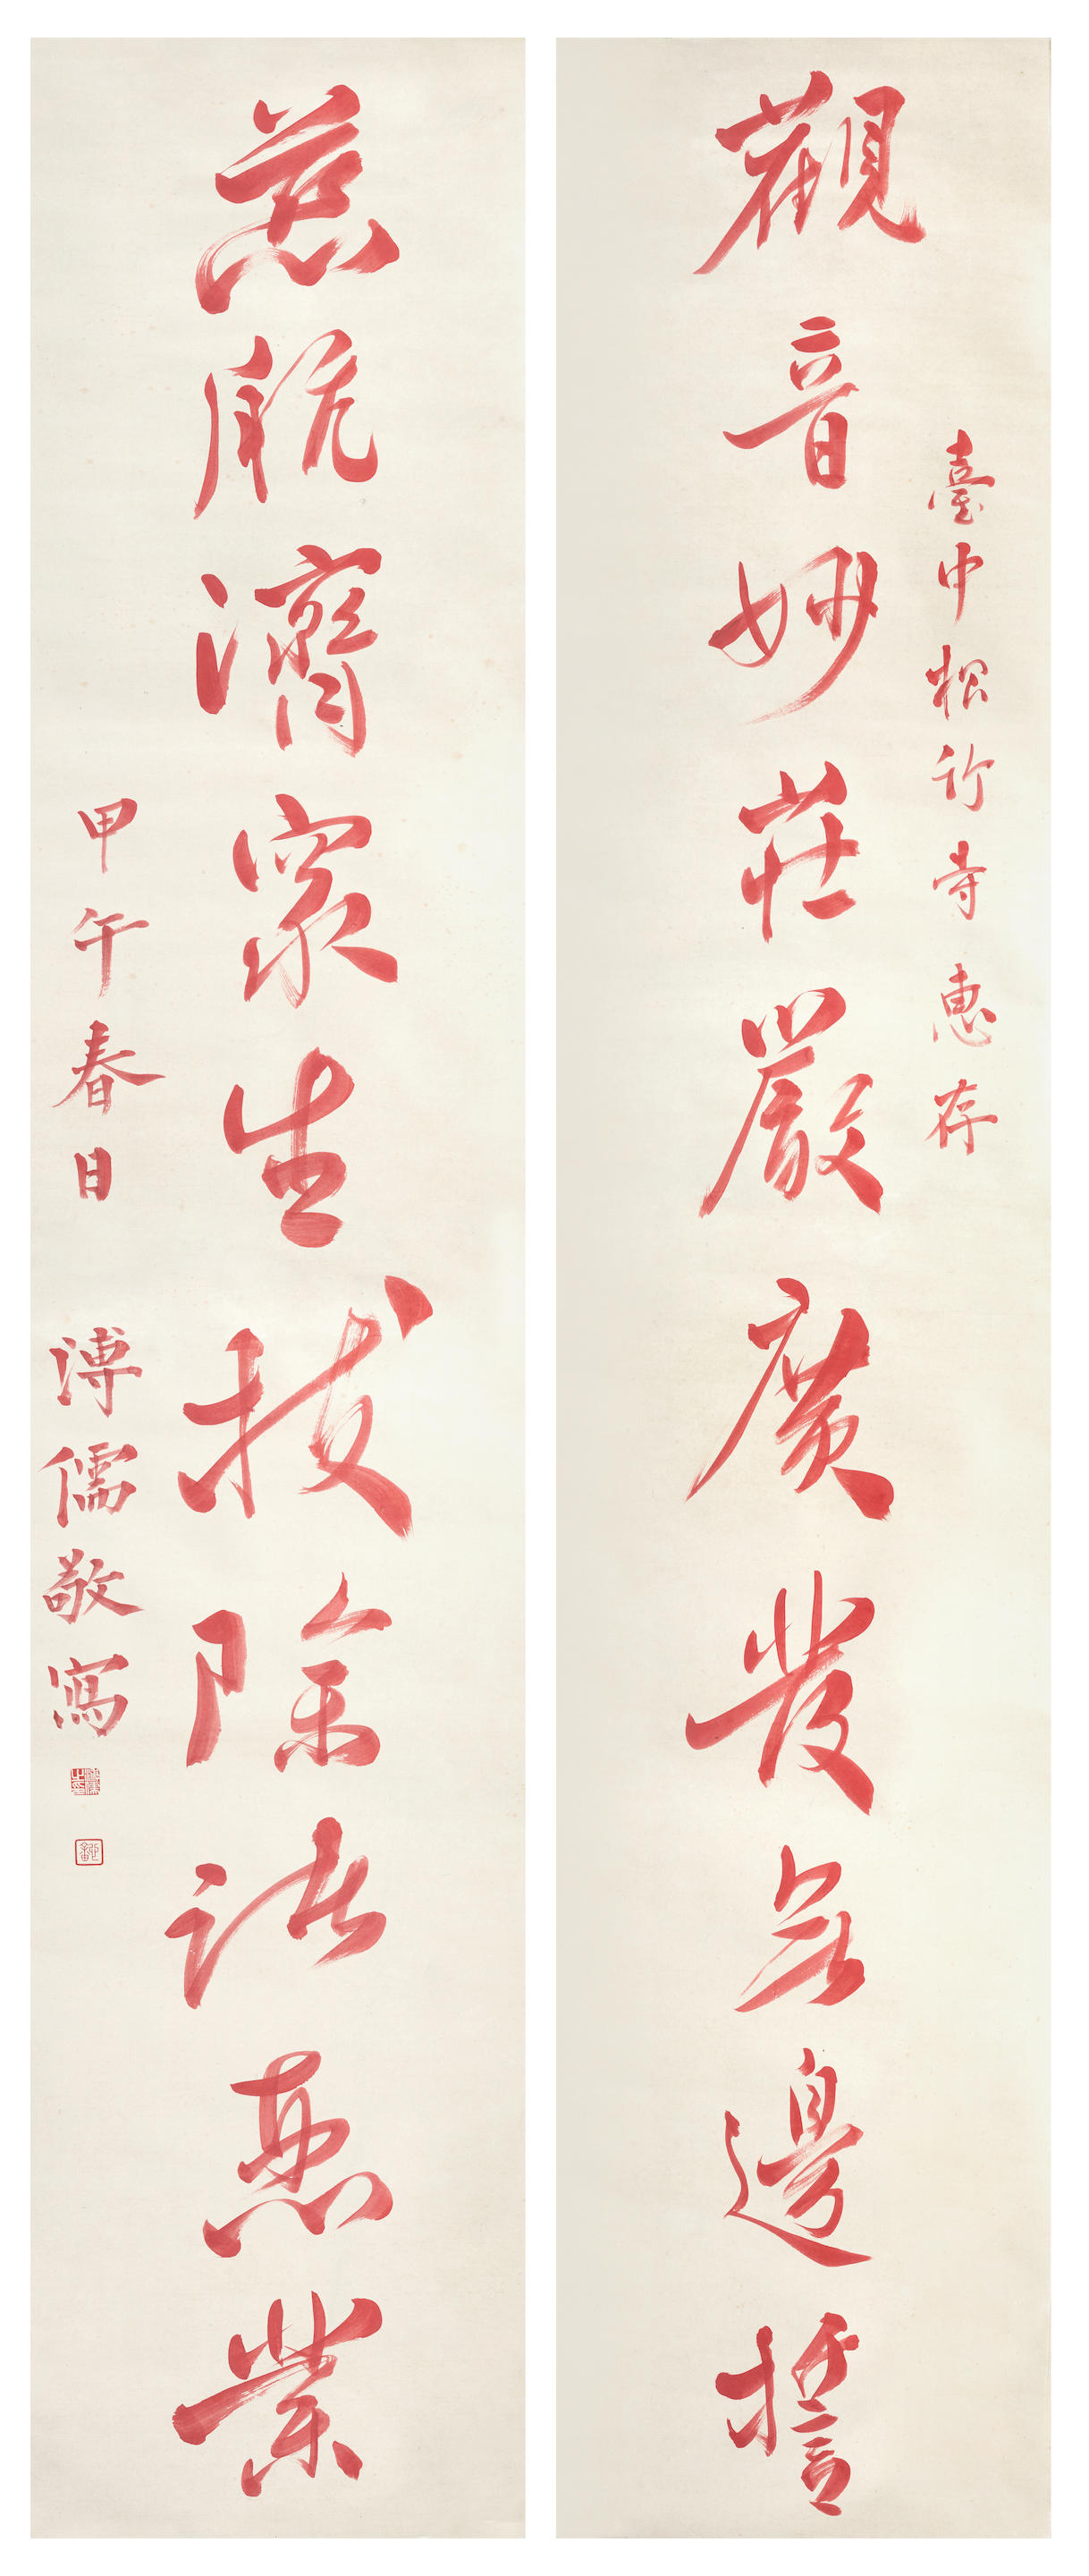 臺中松竹寺惠存
觀音妙莊嚴廣發無邊誓
慈航濟眾生拔除諸惡業
甲午春日
溥儒敬寫